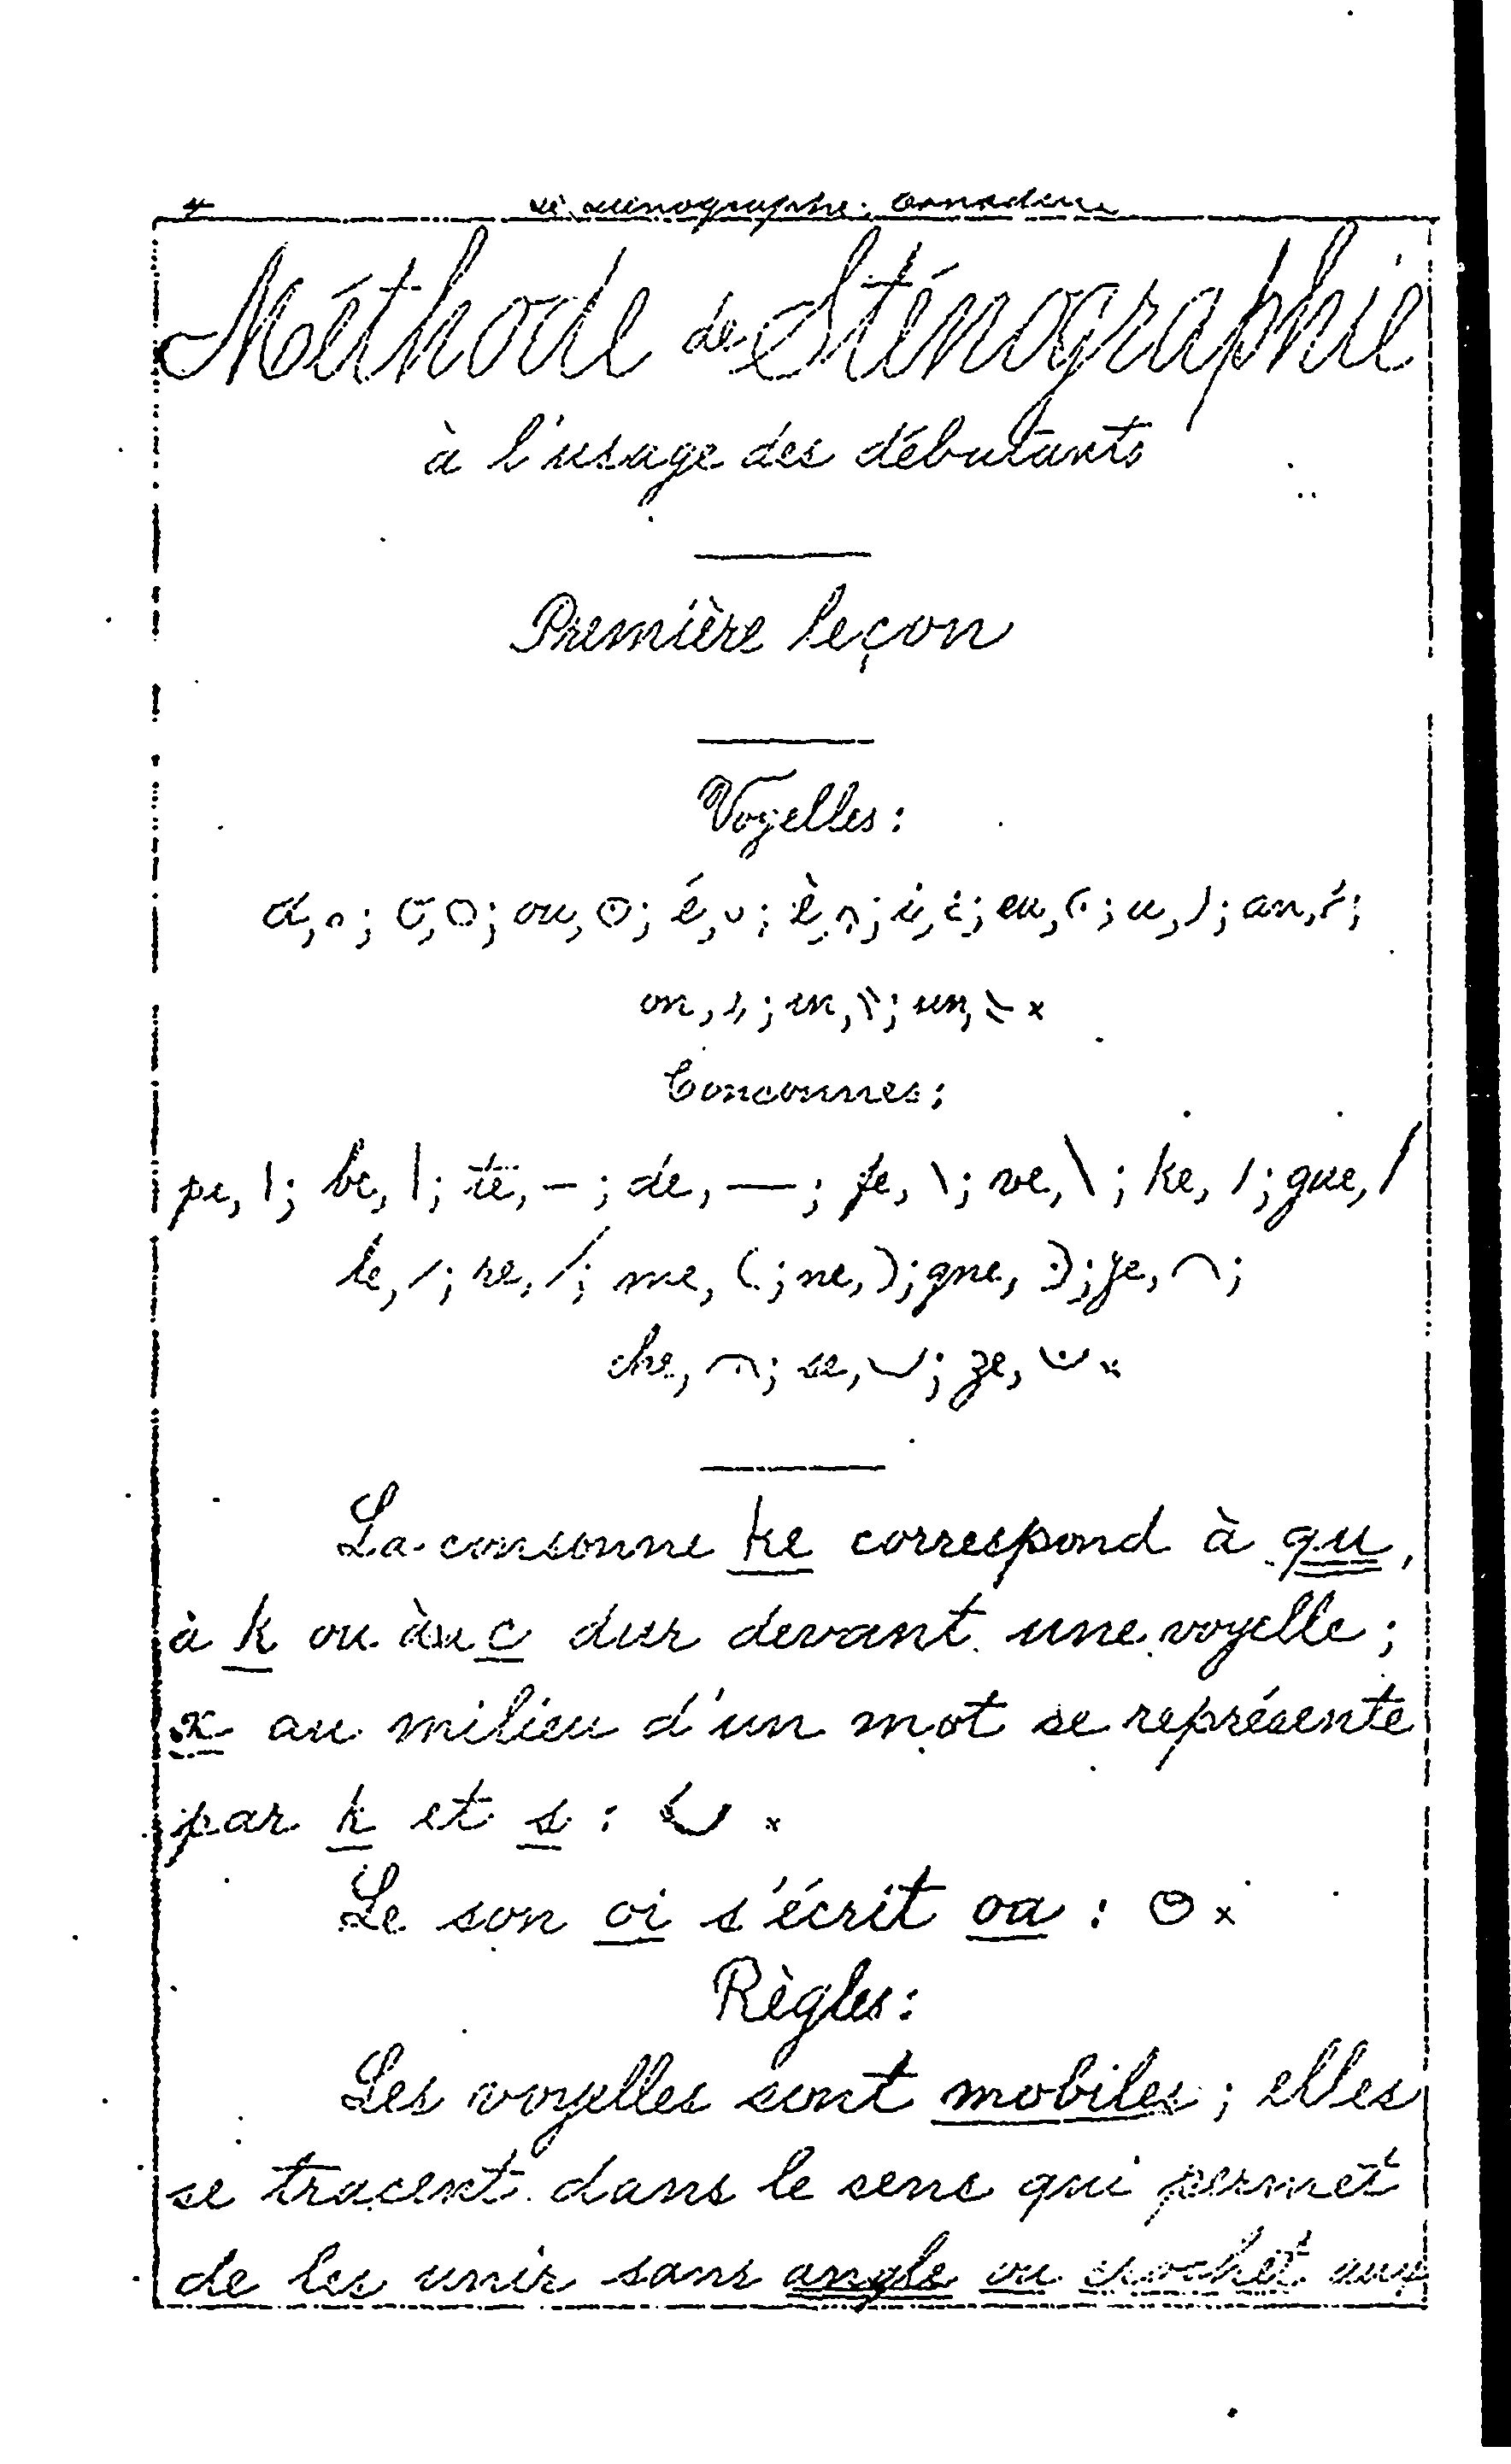 4 Le sténographe Canadien
Méthode de Sténographie
à l'usage des débutants
Première leçon
Voyelles :
a, ; o, ; ou, ; é, ; è, ; i, ; eu, ; u, ; an, ;
on, ; in, ; un, ×
Consonnes :
pe, | ; be, | ; te, – ; de, — ; fe, \ ; ve, \ ; ke, / ; gue, /
le, / ; re, / ; me, ( ; ne, ) ; gne, ; je, ⌒ ;
che, ; se, ; ze, ×
La consonne ke correspond à qu,
à k ou au c dur devant une voyelle ;
x au milieu d'un mot se représente
par k et s : ×
Le son oi s'écrit oa : ×
Règles :
Les voyelles sont mobiles ; elles
se tracent dans le sens qui permet
de les unir sans angle ou crochet aux